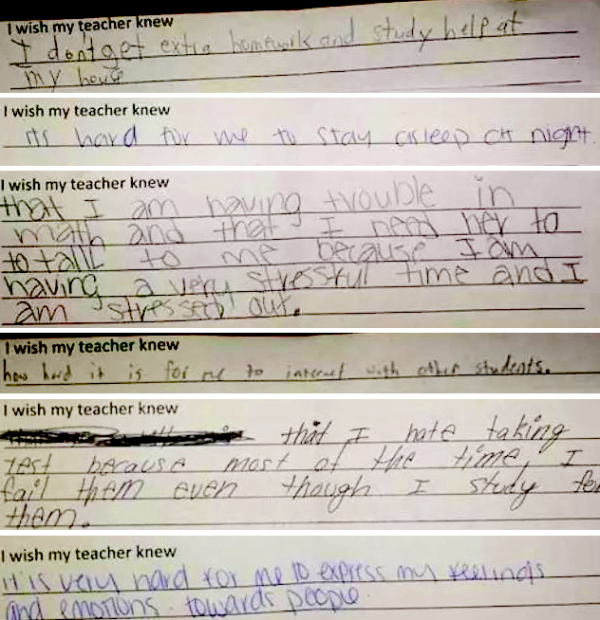 I wish my teacher knew
I dont get extra homework and study help at
my house
I wish my teacher knew
its hard for me to stay asleep at night.
I wish my teacher knew
that I am having trouble in
math and that I need her to
to talk to me because I am
having a very stressful time and I
am stressed out.
I wish my teacher knew
how hard it is for me to interact with other students.
I wish my teacher knew
that I hate taking
test because most of the time, I
fail them even though I study for
them.
I wish my teacher knew
it is very hard for me to express my feelings
and emotions towards people.